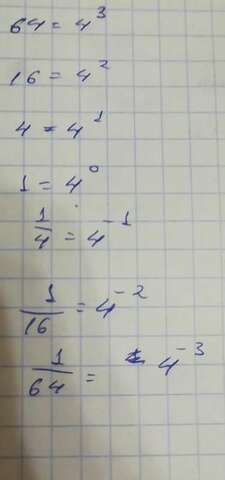 64 = 4³
16 = 4²
4 = 4¹
1 = 4⁰
1/4 = 4⁻¹
1/16 = 4⁻²
1/64 = 4⁻³